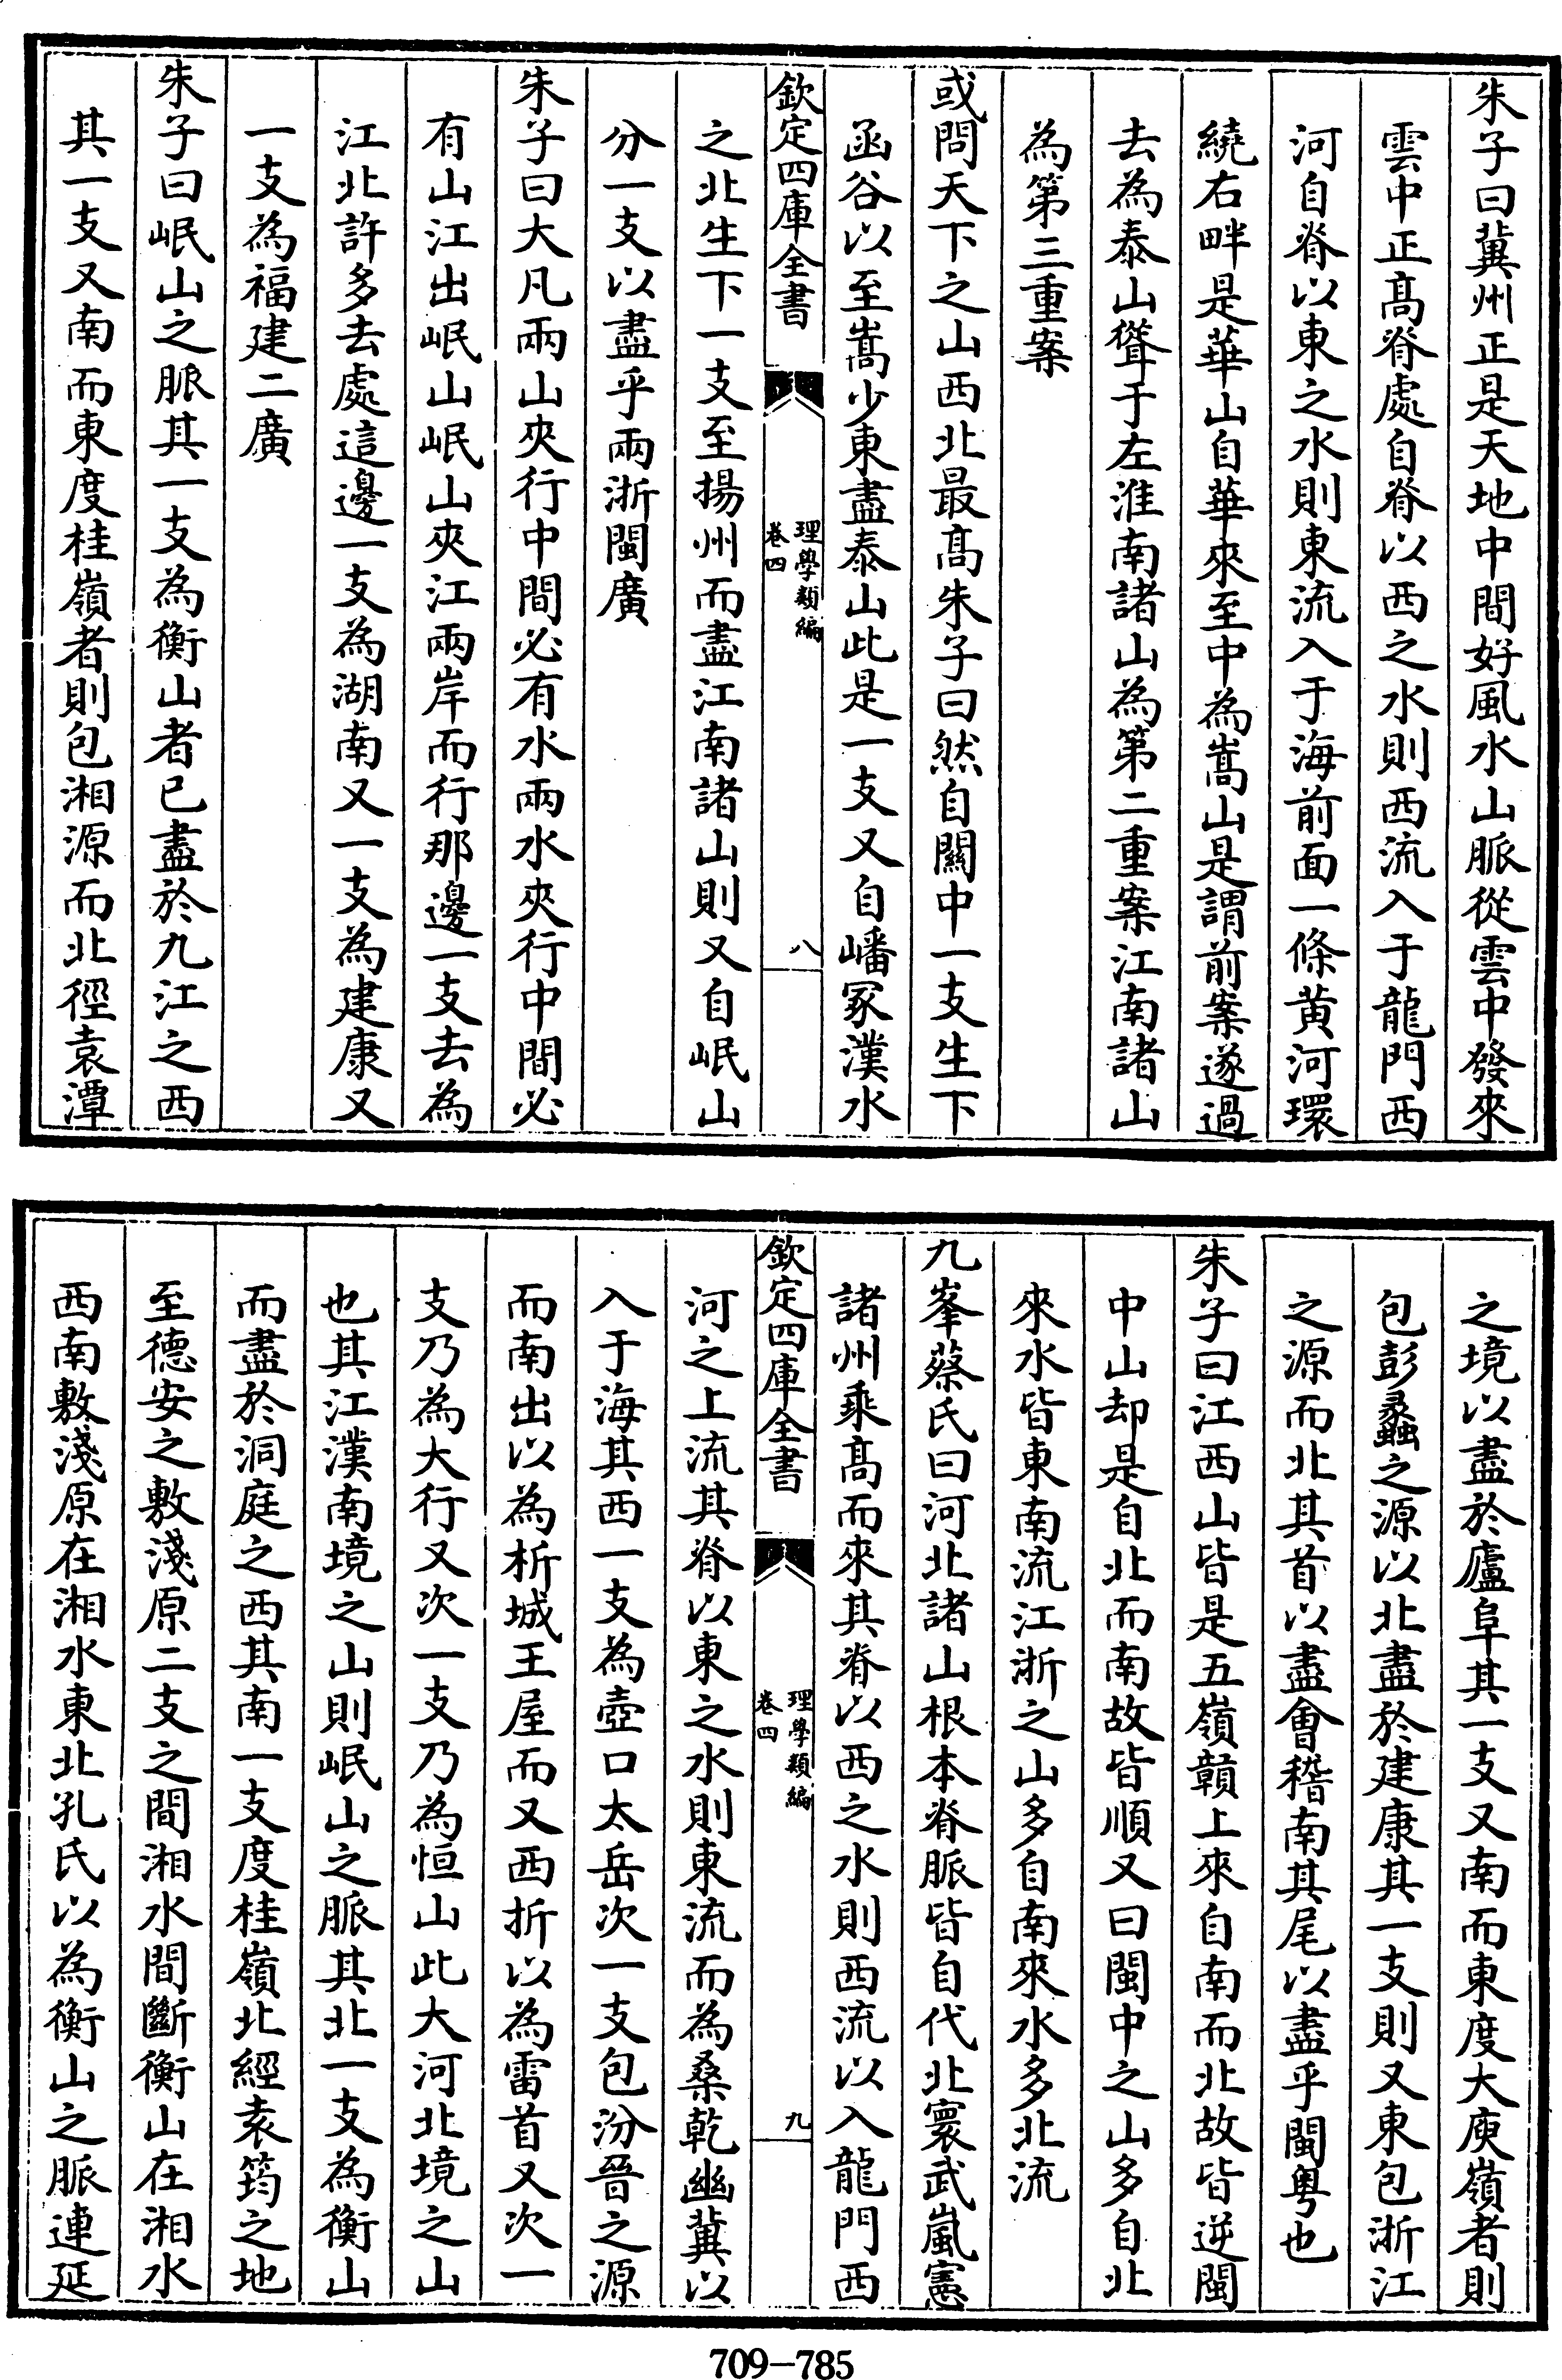 朱子曰冀州正是天地中間好風水山脈從雲中發來
雲中正髙脊處自脊以西之水則西流入于龍門西
河自脊以東之水則東流入于海前面一條黄河環
繞右畔是華山自華來至中為嵩山是謂前案遂過
去為泰山聳于左淮南諸山為第二重案江南諸山
為第三重案
或問天下之山西北最髙朱子曰然自關中一支生下
函谷以至嵩少東盡泰山此是一支又自嶓冢漢水
欽定四庫全書
理學類編
卷四
八
之北生下一支至揚州而盡江南諸山則又自岷山
分一支以盡乎兩浙閩廣
朱子曰大凡兩山夾行中間必有水兩水夾行中間必
有山江出岷山岷山夾江兩岸而行那邊一支去為
江北許多去處這邊一支為湖南又一支為建康又
一支為福建二廣
朱子曰岷山之脈其一支為衡山者已盡於九江之西
其一支又南而東度桂嶺者則包湘源而北徑袁潭
之境以盡於廬阜其一支又南而東度大庾嶺者則
包彭蠡之源以北盡於建康其一支則又東包浙江
之源而北其首以盡會稽南其尾以盡乎閩粤也
朱子曰江西山皆是五嶺贛上來自南而北故皆逆閩
中山却是自北而南故皆順又曰閩中之山多自北
來水皆東南流江浙之山多自南來水多北流
九峯蔡氏曰河北諸山根本脊脈皆自代北寰武嵐憲
諸州乘髙而來其脊以西之水則西流以入龍門西
欽定四庫全書
理學類編
卷四
九
河之上流其脊以東之水則東流而為桑乾幽冀以
入于海其西一支為壺口太岳次一支包汾晉之源
而南出以為析城王屋而又西折以為雷首又次一
支乃為大行又次一支乃為恒山此大河北境之山
也其江漢南境之山則岷山之脈其北一支為衡山
而盡於洞庭之西其南一支度桂嶺北經袁筠之地
至德安之敷淺原二支之間湘水間斷衡山在湘水
西南敷淺原在湘水東北孔氏以為衡山之脈連延
709-785